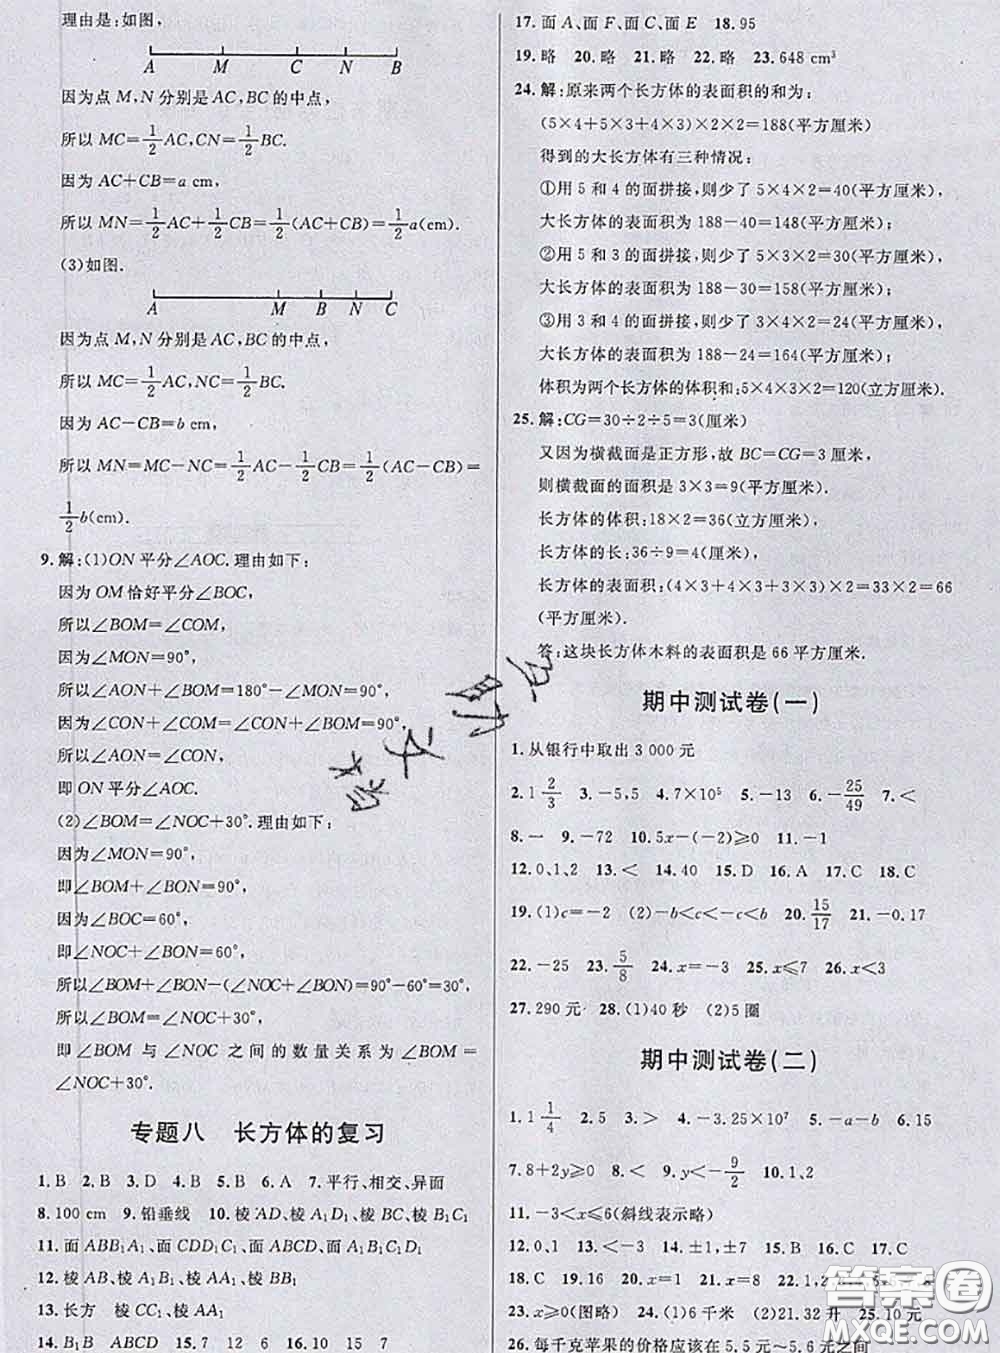 理由是:如图,
A M C N B
因为点 M,N 分别是 AC,BC 的中点,
所以 MC=1/2AC,CN=1/2BC.
因为 AC+CB=a cm,
所以 MN=1/2AC+1/2CB=1/2(AC+CB)=1/2a(cm).
(3)如图.
A M B N C
因为点 M,N 分别是 AC,BC 的中点,
所以 MC=1/2AC,NC=1/2BC.
因为 AC-CB=b cm,
所以 MN=MC-NC=1/2AC-1/2CB=1/2(AC-CB)=
1/2b(cm).
9.解:(1)ON 平分∠AOC.理由如下:
因为 OM 恰好平分∠BOC,
所以∠BOM=∠COM,
因为∠MON=90°,
所以∠AON+∠BOM=180°-∠MON=90°,
∠CON+∠COM=∠CON+∠BOM=90°,
所以∠AON=∠CON,
即 ON 平分∠AOC.
(2)∠BOM=∠NOC+30°.理由如下:
因为∠MON=90°,
即∠BOM+∠BON=90°,
因为∠BOC=60°,
即∠NOC+∠BON=60°,
所以∠BOM+∠BON-(∠NOC+∠BON)=90°-60°=30°,
所以∠BOM=∠NOC+30°,
即∠BOM 与∠NOC 之间的数量关系为∠BOM=
∠NOC+30°.
专题八 长方体的复习
1.B 2.B 3.D 4.B 5.B 6.A 7.平行、相交、异面
8.100 cm 9.铅垂线 10.棱AD、棱A₁D₁、棱BC、棱B₁C₁
11.面ABB₁A₁、面CDD₁C₁、面ABCD、面A₁B₁C₁D₁
12.棱AB、棱A₁B₁、棱AA₁、棱BB₁
13.长方 棱CC₁、棱AA₁
14.B₁B ABCD 15.7 12 6 16.10 15 7
17.面A、面F、面C、面E 18.95
19.略 20.略 21.略 22.略 23.648 cm³
24.解:原来两个长方体的表面积的和为:
(5×4+5×3+4×3)×2×2=188(平方厘米)
得到的大长方体有三种情况:
①用 5 和 4 的面拼接,则少了 5×4×2=40(平方厘米),
大长方体的表面积为 188-40=148(平方厘米),
②用 5 和 3 的面拼接,则少了 5×3×2=30(平方厘米),
大长方体的表面积为 188-30=158(平方厘米),
③用 3 和 4 的面拼接,则少了 3×4×2=24(平方厘米),
大长方体的表面积为 188-24=164(平方厘米),
体积为两个长方体的体积和:5×4×3×2=120(立方厘米).
25.解:CG=30÷2÷5=3(厘米)
又因为横截面是正方形,故 BC=CG=3 厘米,
则横截面的面积是 3×3=9(平方厘米).
长方体的体积:18×2=36(立方厘米),
长方体的长:36÷9=4(厘米),
长方体的表面积:(4×3+4×3+3×3)×2=33×2=66
(平方厘米).
答:这块长方体木料的表面积是 66 平方厘米.
期中测试卷(一)
1.从银行中取出 3 000 元
2.1 2/3 3.-5,5 4.7×10⁵ 5.-13 6.-25/49 7.<
8.一 9.-72 10.5x-(-2)≥0 11.-1
12.0,1,2 13.< 14.40 15.D 16.A 17.C 18.C
19.(1)c=-2 (2)-b<c<-c<b 20.15/17 21.-0.1
22.-25 23.5/8 24.x=-3 25.x≤7 26.x<3
27.290 元 28.(1)40 秒 (2)5 圈
期中测试卷(二)
1.1 1/4 2.5 3.> 4.-3.25×10⁷ 5.-a-b 6.15
7.8+2y≥0 8.< 9.y<-9/2 10.1、2
11.-3<x≤6(斜线表示略)
12.0,1 13.<-3 14.±1,±7 15.D 16.B 17.C
18.C 19.16 20.x=1 21.x=8 22.1,2,3
23.x≥0(图略) 24.(1)6 千米 (2)21.32 升 25.10 元
26.每千克苹果的价格应该在 5.5 元~5.6 元之间
答案圈
MXQE.COM